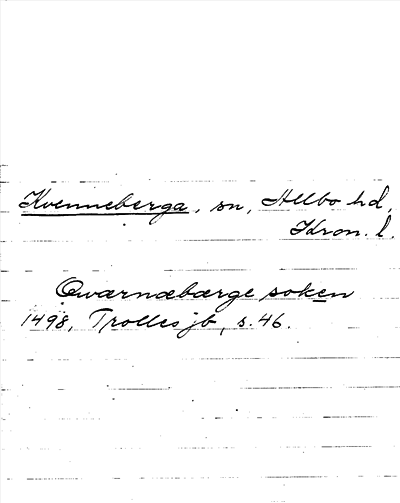 Kvenneberga, sn, Allbo hd,
Kron. l.
Qwærnæbærge soken
1498, Trolles jb, s. 46.